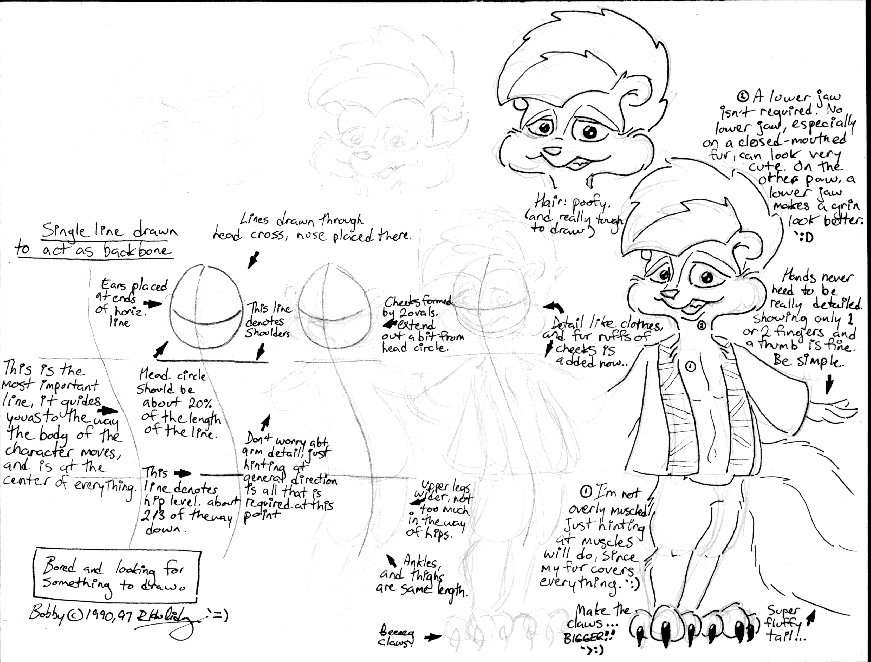 ② A lower jaw
isn't required. No
lower jaw, especially
on a closed-mouthed
fur, can look very
cute. On the
other paw, a
lower jaw
makes a grin
look better.
:D
Hair: poofy.
(and really tough
to draw)
Lines drawn through
head cross, nose placed there.
Single line drawn
to act as backbone
Ears placed
at ends
of horiz.
line
This line
denotes
shoulders
Cheeks formed
by 2 ovals.
extend
out a bit from
head circle.
Detail like clothes,
and fur ruffs of
cheeks is
added now..
Hands never
need to be
really detailed.
showing only 1
or 2 fingers and
a thumb is fine.
Be simple.
This is the
most important
line, it guides
you as to the way
the body of the
character moves,
and is at the
center of everything.
Head circle
should be
about 20%
of the length
of the line.
Don't worry abt,
arm detail, just
hinting at
general direction
is all that is
required at this
point
This
line denotes
hip level. about
2/3 of the way
down.
Upper legs
wider. not
too much
in the way
of hips.
① I'm not
overly muscled
Just hinting
at muscles
will do, since
my fur covers
everything. :)
②
①
Ankles,
and thighs
are same length.
Bored and looking for
something to draw.
Bobby © 1990, 97 :=)
claws!
Make the
claws...
BIGGER!!
>:)
Super
fluffy
tail!..